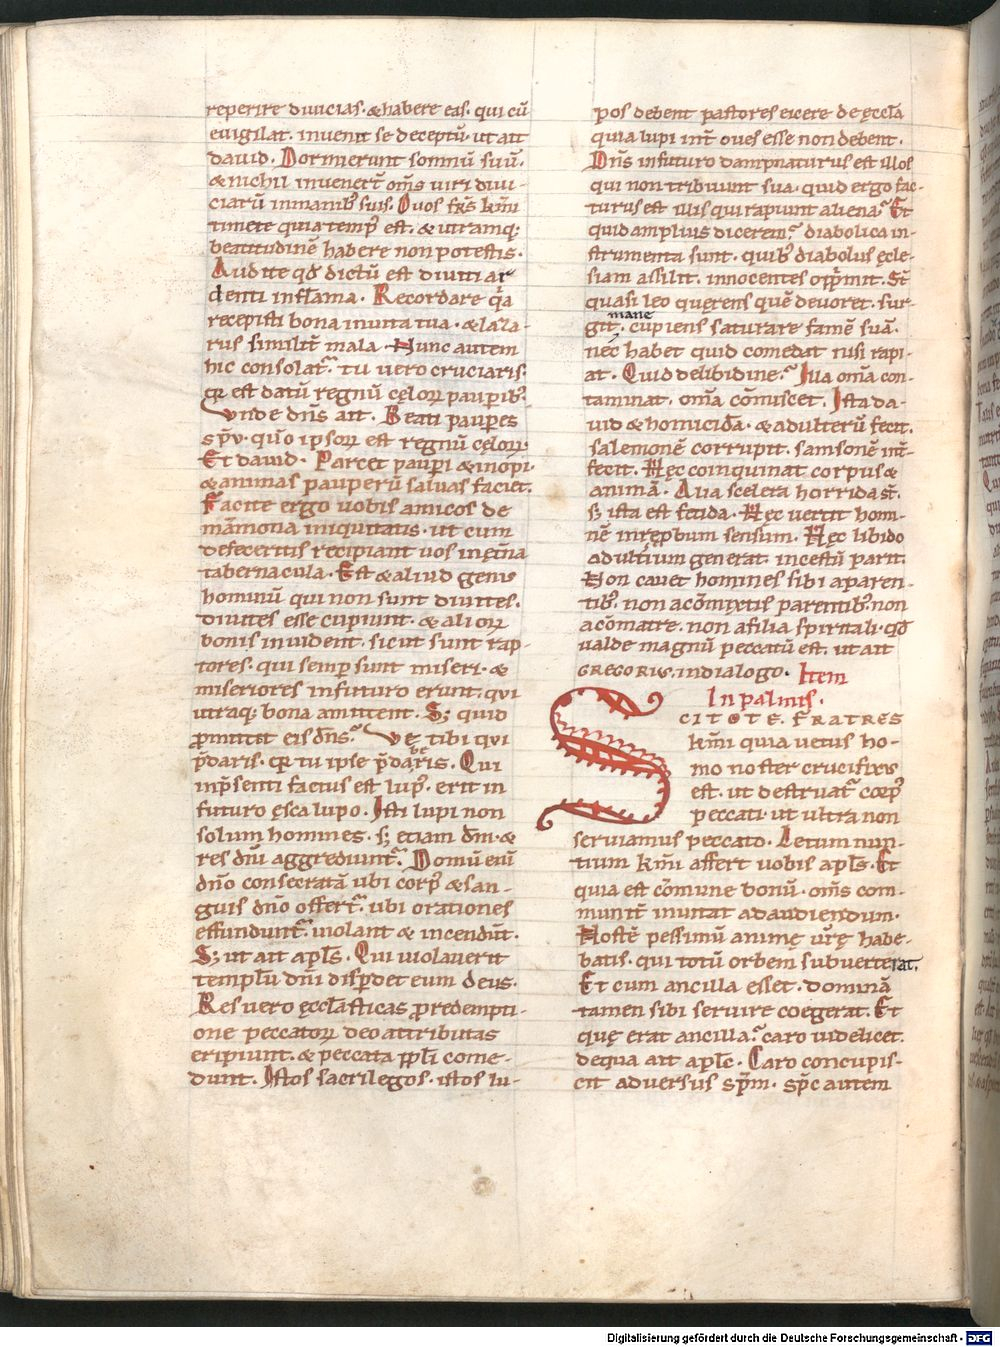 reperire diuicias. & habere eas. qui cū
euigilat. inuenit se deceptū. ut ait
dauid. Dormierunt somnū suū.
& nichil inuener̄t om̄s uiri diui-
ciarū in manib; suis. Quos fr̄s km̄i
timete quia temp' est. & utramq;
beatitudinē habere non potestis.
Audite qđ dictū est diuiti ar
denti in flāma. Recordare q̄a
recepisti bona in uita tua. & laza-
rus similit̄ mala. Nunc autem
hic consolat᷑. tu uero cruciaris.
q̄ est datū regnū cęloꝝ pauꝑib;.
Vnde dn̄s ait. Beati pauꝑes
spū. qūo ipsoꝝ est regnū cęloꝝ.
Et dauid. Parcet pauꝑi & inopi.
& animas pauperū saluas faciet.
Facite ergo uobis amicos de
māmona iniquitatis. ut cum
defeceritis recipiant uos in ęt̄na
tabernacula. Est & aliud genus
hominū qui non sunt diuites.
diuites esse cupiunt. & alioꝝ
bonis inuident. sicut sunt rap-
tores. qui semꝑ sunt miseri. &
miseriores in futuro erunt. qui
utraq; bona amittent. S; quid
ꝓmittit eis dn̄s. Vę tibi qui
p̄daris. q̄ tu ipse p̄daberis. Qui
in p̄senti factus est lup'. erit in
futuro ęsca lupo. Isti lupi non
solum homines. s; etiam dm̄. &
res dn̄i aggrediunt᷑. Domū enī
dn̄o consecratā ubi corp' & san-
guis dn̄o offert᷑. ubi orationes
effundunt᷑. uiolant & incendūt.
S; ut ait apl̄s. Qui uiolauerit
templū dn̄i disꝑdet eum deus.
Res uero ęccl̄asticas ꝓ redempti-
one peccatoꝝ deo attributas
eripiunt. & peccata ppl̄i come-
dunt. Istos sacrilegos. istos lu-
pos debent pastores eicere de ęccl̄a
quia lupi int̄ oues esse non debent.
Dn̄s in futuro dampnaturus est illos
qui non tribuunt sua. quid ergo fac-
turus est illis qui rapiunt aliena. Et
quid amplius dicerem. diabolica in-
strumenta sunt. quib; diabolus ęcle-
siam assilit. innocentes oppm̄it. St̄
quasi leo quęrens quē deuoret. sur-
mane
git. cupiens saturare famē suā.
nec habet quid comedat nisi rapi-
at. Quid de libidine. Illa om̄a con-
taminat. om̄a cōmiscet. Ista da-
uid & homicidā. & adulterū fecit.
salemonē corrupit. samsonē int̄-
fecit. Hęc coinquinat corpus &
animā. Alia scelera horrida st̄.
s; ista est fetida. Hęc uertit homi-
nē in rep̄bum sensum. Hęc libido
adult̄ium generat. incestū parit.
Non cauet homines sibi a paren-
tib;. non a cōmixtis parentib; non
a cōmatre. non a filia spiritali. qđ
ualde magnū peccatū est. ut ait
GREGORIVS. in dialogo. Item
In palmis.
SCITOTE FRATRES
km̄i quia uetus ho-
mo noster crucifixus
est. ut destruat᷑ corp'
peccati. ut ultra non
seruiamus peccato. Letum nun-
tium km̄i affert uobis apl̄s. Et
quia est cōmune bonū. om̄s com-
munit̄ inuitat ad audiendum.
Hostē pessimū animę ur̄ę habe-
batis. qui totū orbem subuerterat.
Et cum ancilla esset. dominā
tamen sibi seruire coegerat. Et
quę erat ancilla. caro uidelicet.
de qua ait apl̄c. Caro concupis-
cit aduersus sp̄m. sp̄c autem
Digitalisierung gefördert durch die Deutsche Forschungsgemeinschaft - DFG